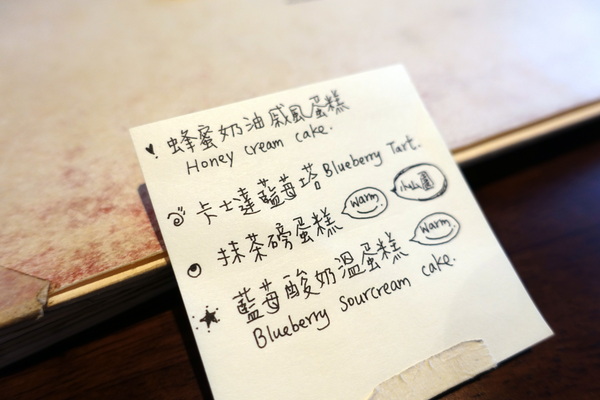 蜂蜜奶油戚風蛋糕
Honey cream cake.
卡士達藍莓塔 Blueberry Tart.
抹茶磅蛋糕 warm
藍莓酸奶溫蛋糕 warm
Blueberry sourcream cake.